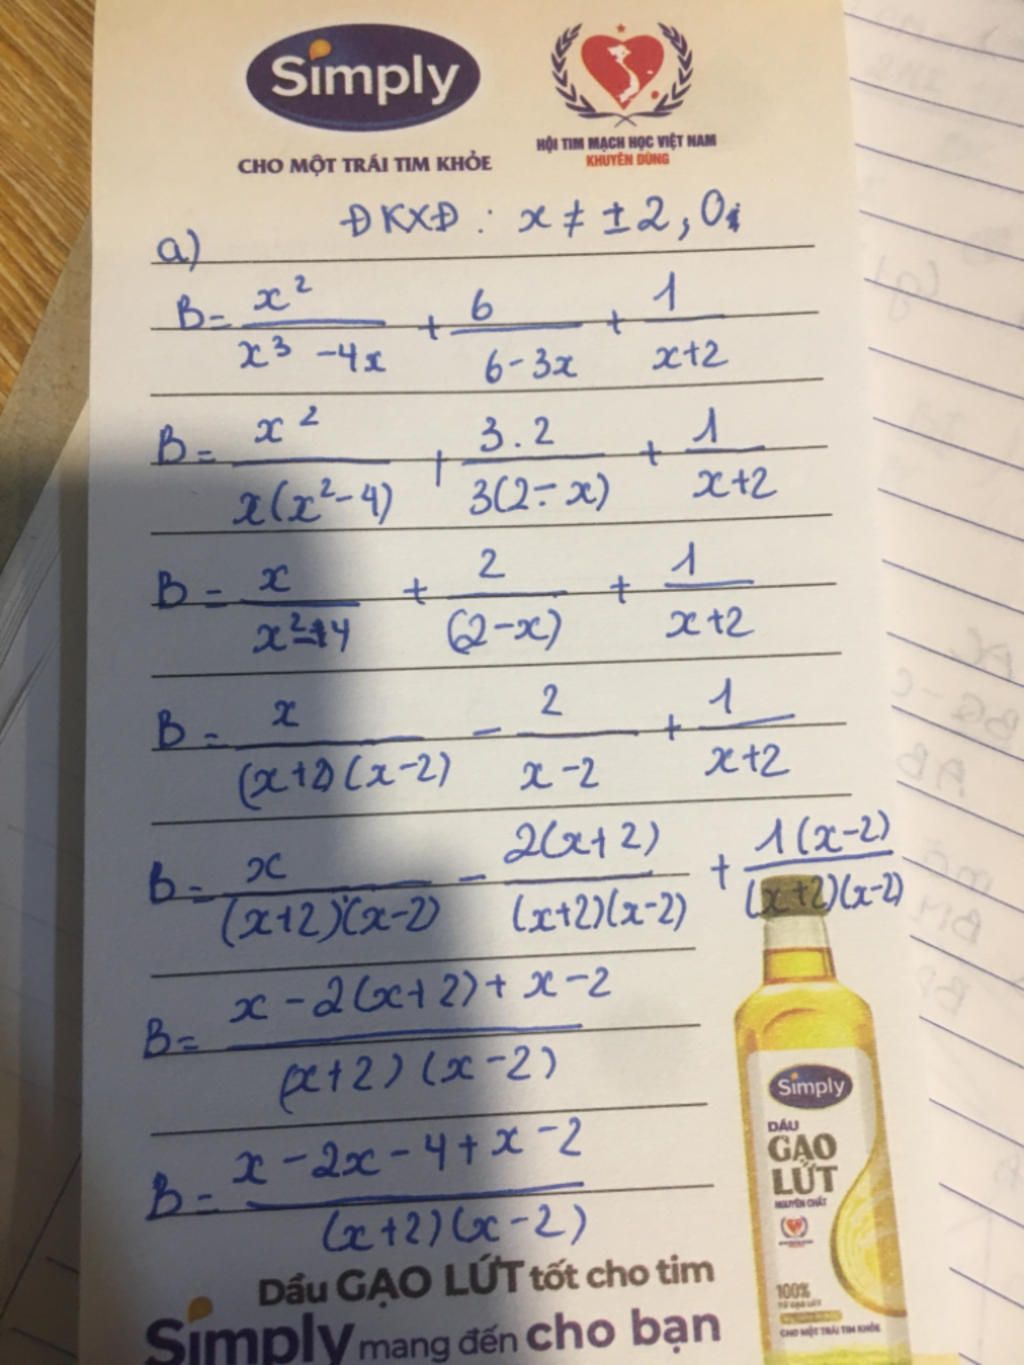 Simply
CHO MỘT TRÁI TIM KHỎE
HỘI TIM MẠCH HỌC VIỆT NAM
KHUYÊN DÙNG
ĐKXĐ : x ≠ ±2, 0
a)
B = x² / (x³ - 4x) + 6 / (6 - 3x) + 1 / (x+2)
B = x² / (x(x² - 4)) + 3.2 / (3(2 - x)) + 1 / (x+2)
B = x / (x² - 4) + 2 / (2 - x) + 1 / (x+2)
B = x / ((x+2)(x-2)) - 2 / (x-2) + 1 / (x+2)
B = x / ((x+2)(x-2)) - 2(x+2) / ((x+2)(x-2)) + 1(x-2) / ((x+2)(x-2))
B = (x - 2(x+2) + x - 2) / ((x+2)(x-2))
B = (x - 2x - 4 + x - 2) / ((x+2)(x-2))
Simply
DẦU
GẠO
LỨT
NGUYÊN CHẤT
100%
CHO MỘT TRÁI TIM KHỎE
Dầu GẠO LỨT tốt cho tim
Simply mang đến cho bạn